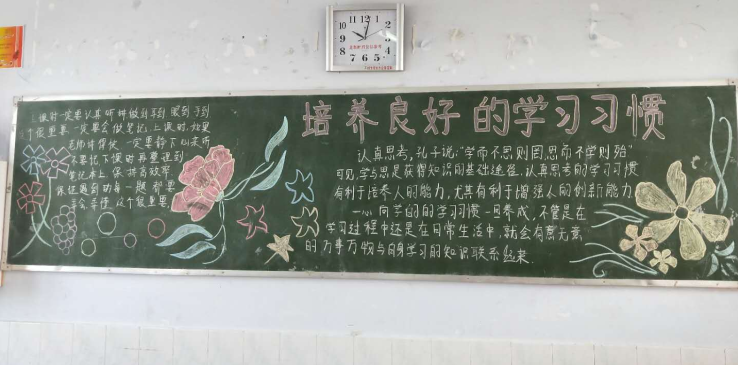 培养良好的学习习惯
上课时一定要认真听讲做到耳到 眼到 手到
这个很重要一定要会做笔记，上课时，如果
老师讲得快 一定要静下心来听
不要记下课时再整理到
笔记本上 保持高效率
保证遇到的每一题 都要
弄会弄懂 这个很重要
认真思考，孔子说："学而不思则罔，思而不学则殆"
可见，学与思是获得知识的基础途径，认真思考的学习习惯
有利于培养人的能力，尤其有利于增强人的创新能力
一心向学的的学习习惯一旦养成，不管是在
学习过程中还是在日常生活中，就会有意无意
的万事万物与自身学习的知识联系起来.
12
1
2
3
4
5
6
7
8
9
10
11